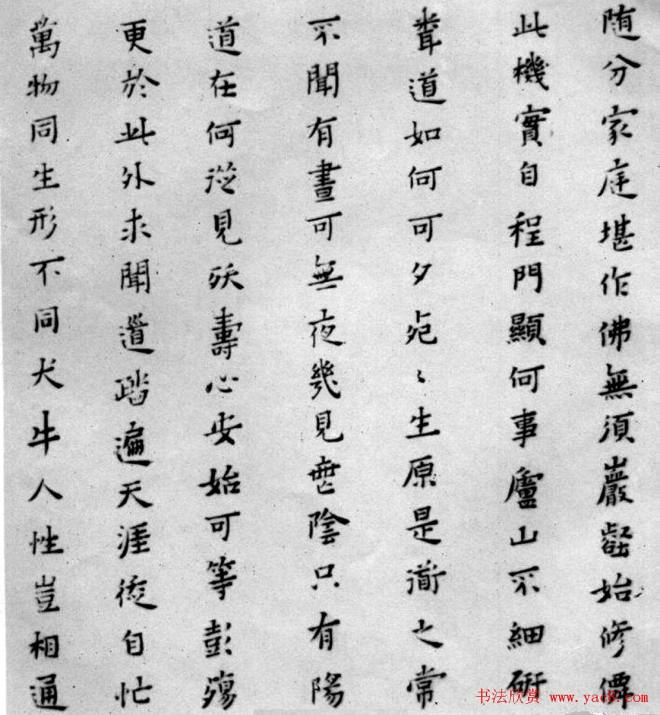 随分家庭堪作佛無須巖壑始修僊
此機實自程門顯何事廬山不細研
道如何可夕死〻生原是道之常
不聞有晝可無夜幾見陰只有陽
道在何從見殀壽心安始可等彭殤
更於此外求聞道踏遍天涯後自忙
萬物同生形不同犬牛人性豈相通
书法欣赏 www.yac8.com